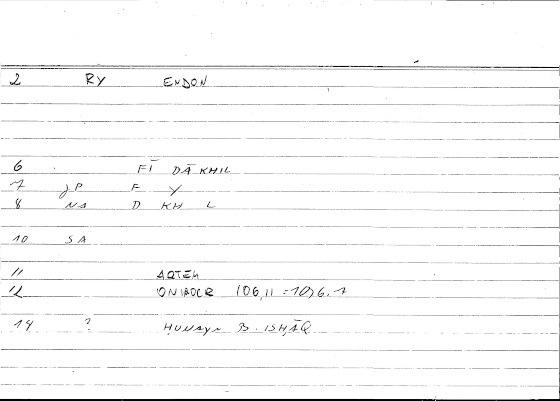 2 RY ENDON
6 FĪ DĀKHIL
7 jP F Y
8 NA D KH L
10 SA
11 ARTEM
12 ONIROCR 106,11 = 10,6.7
14 ? HUNAYN B. ISHĀQ